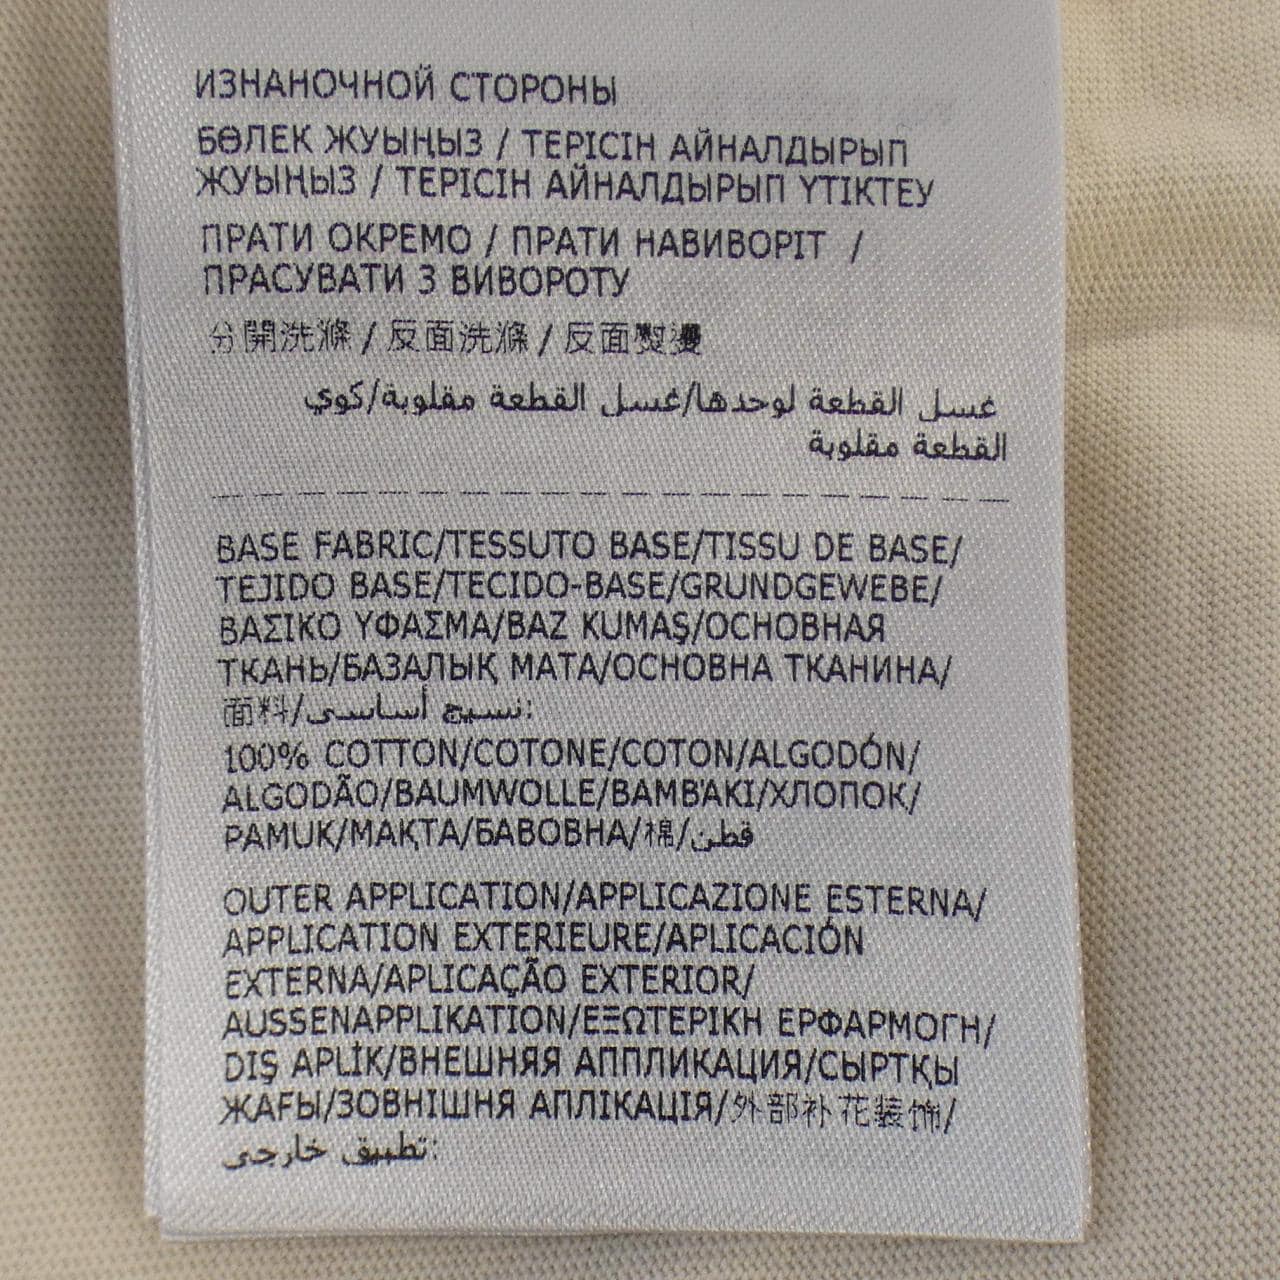 ИЗНАНОЧНОЙ СТОРОНЫ
БӨЛЕК ЖУЫҢЫЗ / ТЕРІСІН АЙНАЛДЫРЫП
ЖУЫҢЫЗ / ТЕРІСІН АЙНАЛДЫРЫП ҮТІКТЕУ
ПРАТИ ОКРЕМО / ПРАТИ НАВИВОРІТ /
ПРАСУВАТИ З ВИВОРОТУ
分開洗滌 / 反面洗滌 / 反面熨燙
غسل القطعة لوحدها/غسل القطعة مقلوبة/كوي
القطعة مقلوبة
BASE FABRIC/TESSUTO BASE/TISSU DE BASE/
TEJIDO BASE/TECIDO-BASE/GRUNDGEWEBE/
ΒΑΣΙΚΟ ΥΦΑΣΜΑ/BAZ KUMAŞ/ОСНОВНАЯ
ТКАНЬ/БАЗАЛЫҚ МАТА/ОСНОВНА ТКАНИНА/
面料/نسيج أساسى:
100% COTTON/COTONE/COTON/ALGODÓN/
ALGODÃO/BAUMWOLLE/ΒΑΜΒ'ΑΚΙ/ХЛОПОК/
PAMUK/МАҚТА/БАВОВНА/棉/قطن
OUTER APPLICATION/APPLICAZIONE ESTERNA/
APPLICATION EXTERIEURE/APLICACIÓN
EXTERNA/APLICAÇÃO EXTERIOR/
AUSSENAPPLIKATION/ΕΞΩΤΕΡΙΚΗ ΕΡΦΑΡΜΟΓΗ/
DIŞ APLİK/ВНЕШНЯЯ АППЛИКАЦИЯ/СЫРТҚЫ
ЖАҒЫ/ЗОВНІШНЯ АПЛІКАЦІЯ/外部补花装饰/
تطبيق خارجى: